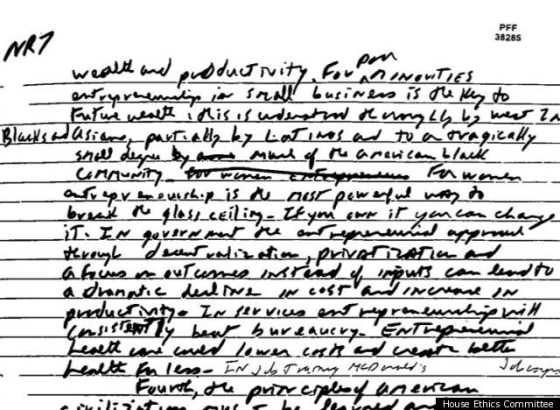 PFF
38285
NR7
wealth and productivity. For poor minorities
entrepreneurship in small business is the key to
future wealth. this is understood thoroughly by west In
Blacks and asians, partially by Latinos and to a tragically
small degree by much of the american black
community. for women entrepreneurs For women
entrepreneurship is the most powerful way to
break the glass ceiling - If you own it you can change
it. In government the entrepreneurial approach
through decentralization, privatization and
a focus on outcomes instead of inputs can lead to
a dramatic decline in cost and increase in
productivity. In services entrepreneurship will
consistently beat bureaucracy. Entrepreneurial
health care could lower costs and create better
health for less - In job training McDonald's
Fourth, the principles of american
civilization must be learned and
House Ethics Committee